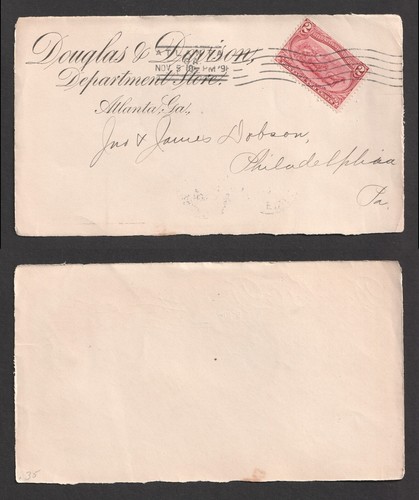 Douglas & Davison,
Department Store.
Atlanta, Ga.,
Jno & James Dobson,
Philadelphia
Pa.
2
2
35